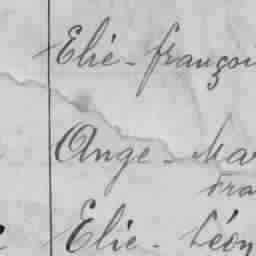 Elie - françoi
Ange - Mar
Fra
Elie - Léon